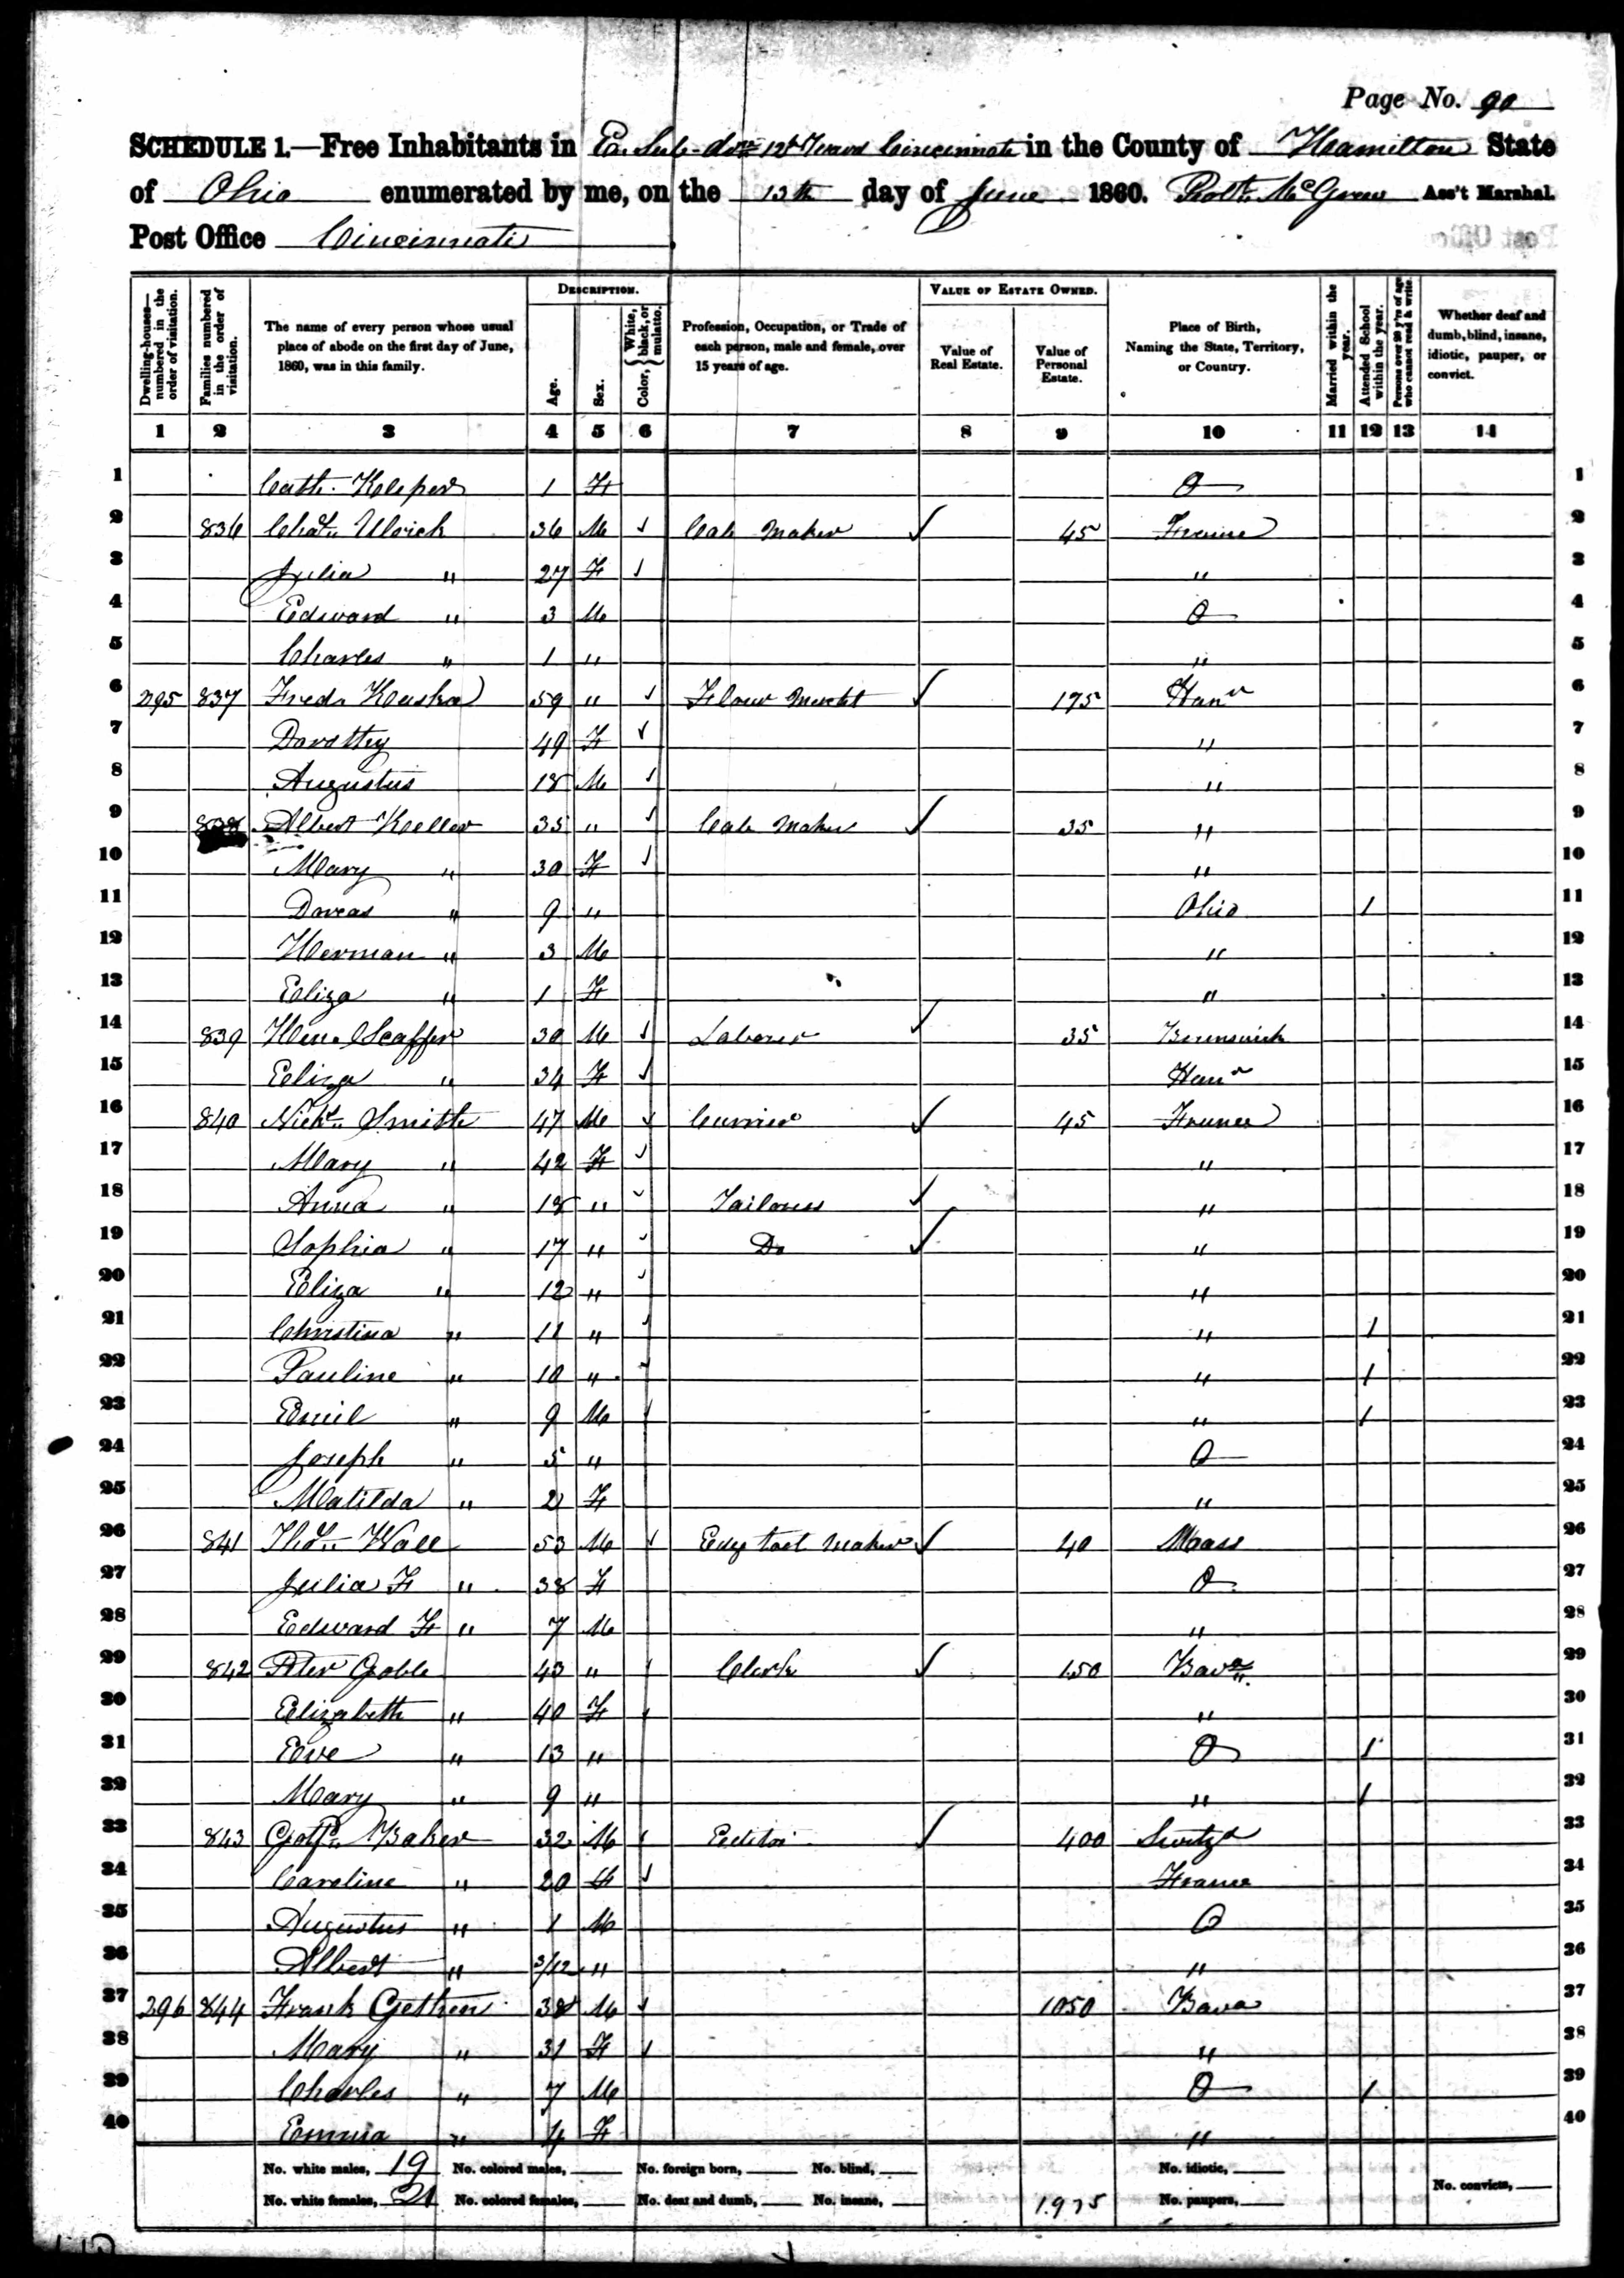 Page No. 90
SCHEDULE 1.—Free Inhabitants in Ea. Sub-divn 12th Ward Cincinnati in the County of Hamilton State
of Ohio enumerated by me, on the 13th day of June 1860. Robt. McGrew Ass't Marshal.
Post Office Cincinnati
Dwelling-houses—numbered in the order of visitation.
Families numbered in the order of visitation.
The name of every person whose usual place of abode on the first day of June, 1860, was in this family.
DESCRIPTION.
Age.
Sex.
Color, {White, black, or mulatto.
Profession, Occupation, or Trade of each person, male and female, over 15 years of age.
VALUE OF ESTATE OWNED.
Value of Real Estate.
Value of Personal Estate.
Place of Birth, Naming the State, Territory, or Country.
Married within the year.
Attended School within the year.
Persons over 20 y'rs of age who cannot read & write.
Whether deaf and dumb, blind, insane, idiotic, pauper, or convict.
1 2 3 4 5 6 7 8 9 10 11 12 13 14
1 Cath. 1 F O 1
2 836 Chas. Ulrich 36 M ✓ Cab Maker ✓ 45 France 2
3 Julia " 27 F ✓ " 3
4 Edward " 3 M O 4
5 Charles " 1 " " 5
6 295 837 Fredr 59 " ✓ Flour Mercht ✓ 175 Hanr 6
7 Dorothy 49 F ✓ " 7
8 Augustus 18 M ✓ " 8
9 838 Albert Keller 35 " ✓ Cab Maker ✓ 35 " 9
10 Mary " 30 F ✓ " 10
11 Dorcas " 9 " Ohio 1 11
12 Herman " 3 M " 12
13 Eliza " 1 F " 13
14 839 Hen. Scaffer 30 M ✓ Laborer ✓ 35 Brunswick 14
15 Eliza " 34 F ✓ Hanr 15
16 840 Nichs. Smith 47 M ✓ Currier ✓ 45 France 16
17 Mary " 42 F ✓ " 17
18 Anna " 18 " ✓ Tailoress ✓ " 18
19 Sophia " 17 " ✓ Do ✓ " 19
20 Eliza " 12 " ✓ " 20
21 Christina " 11 " ✓ " 1 21
22 Pauline " 10 " ✓ " 1 22
23 Emil " 9 M ✓ " 1 23
24 Joseph " 5 " O 24
25 Matilda " 2 F " 25
26 841 Thos. Hall 53 M ✓ Edge tool Maker ✓ 40 Mass 26
27 Julia F " 38 F O 27
28 Edward F " 7 M " 28
29 842 Peter Goble 43 " ✓ Clerk ✓ 150 Bava. 29
30 Elizabeth " 40 F ✓ " 30
31 Eve " 13 " O 1 31
32 Mary " 9 " " 1 32
33 843 Gotfd. Baker 32 M ✓ Editor ✓ 400 Switzd 33
34 Caroline " 20 F ✓ France 34
35 Augustus " 1 M O 35
36 Albert " 3/12 " " 36
37 296 844 Frank 38 M ✓ 1050 Bava 37
38 Mary " 31 F ✓ " 38
39 Charles " 7 M O 1 39
40 Emma " 4 F " 40
No. white males, 19 No. colored males, No. foreign born, No. blind, No. idiotic,
No. white females, 21 No. colored females, No. deaf and dumb, No. insane, 1975 No. paupers, No. convicts,